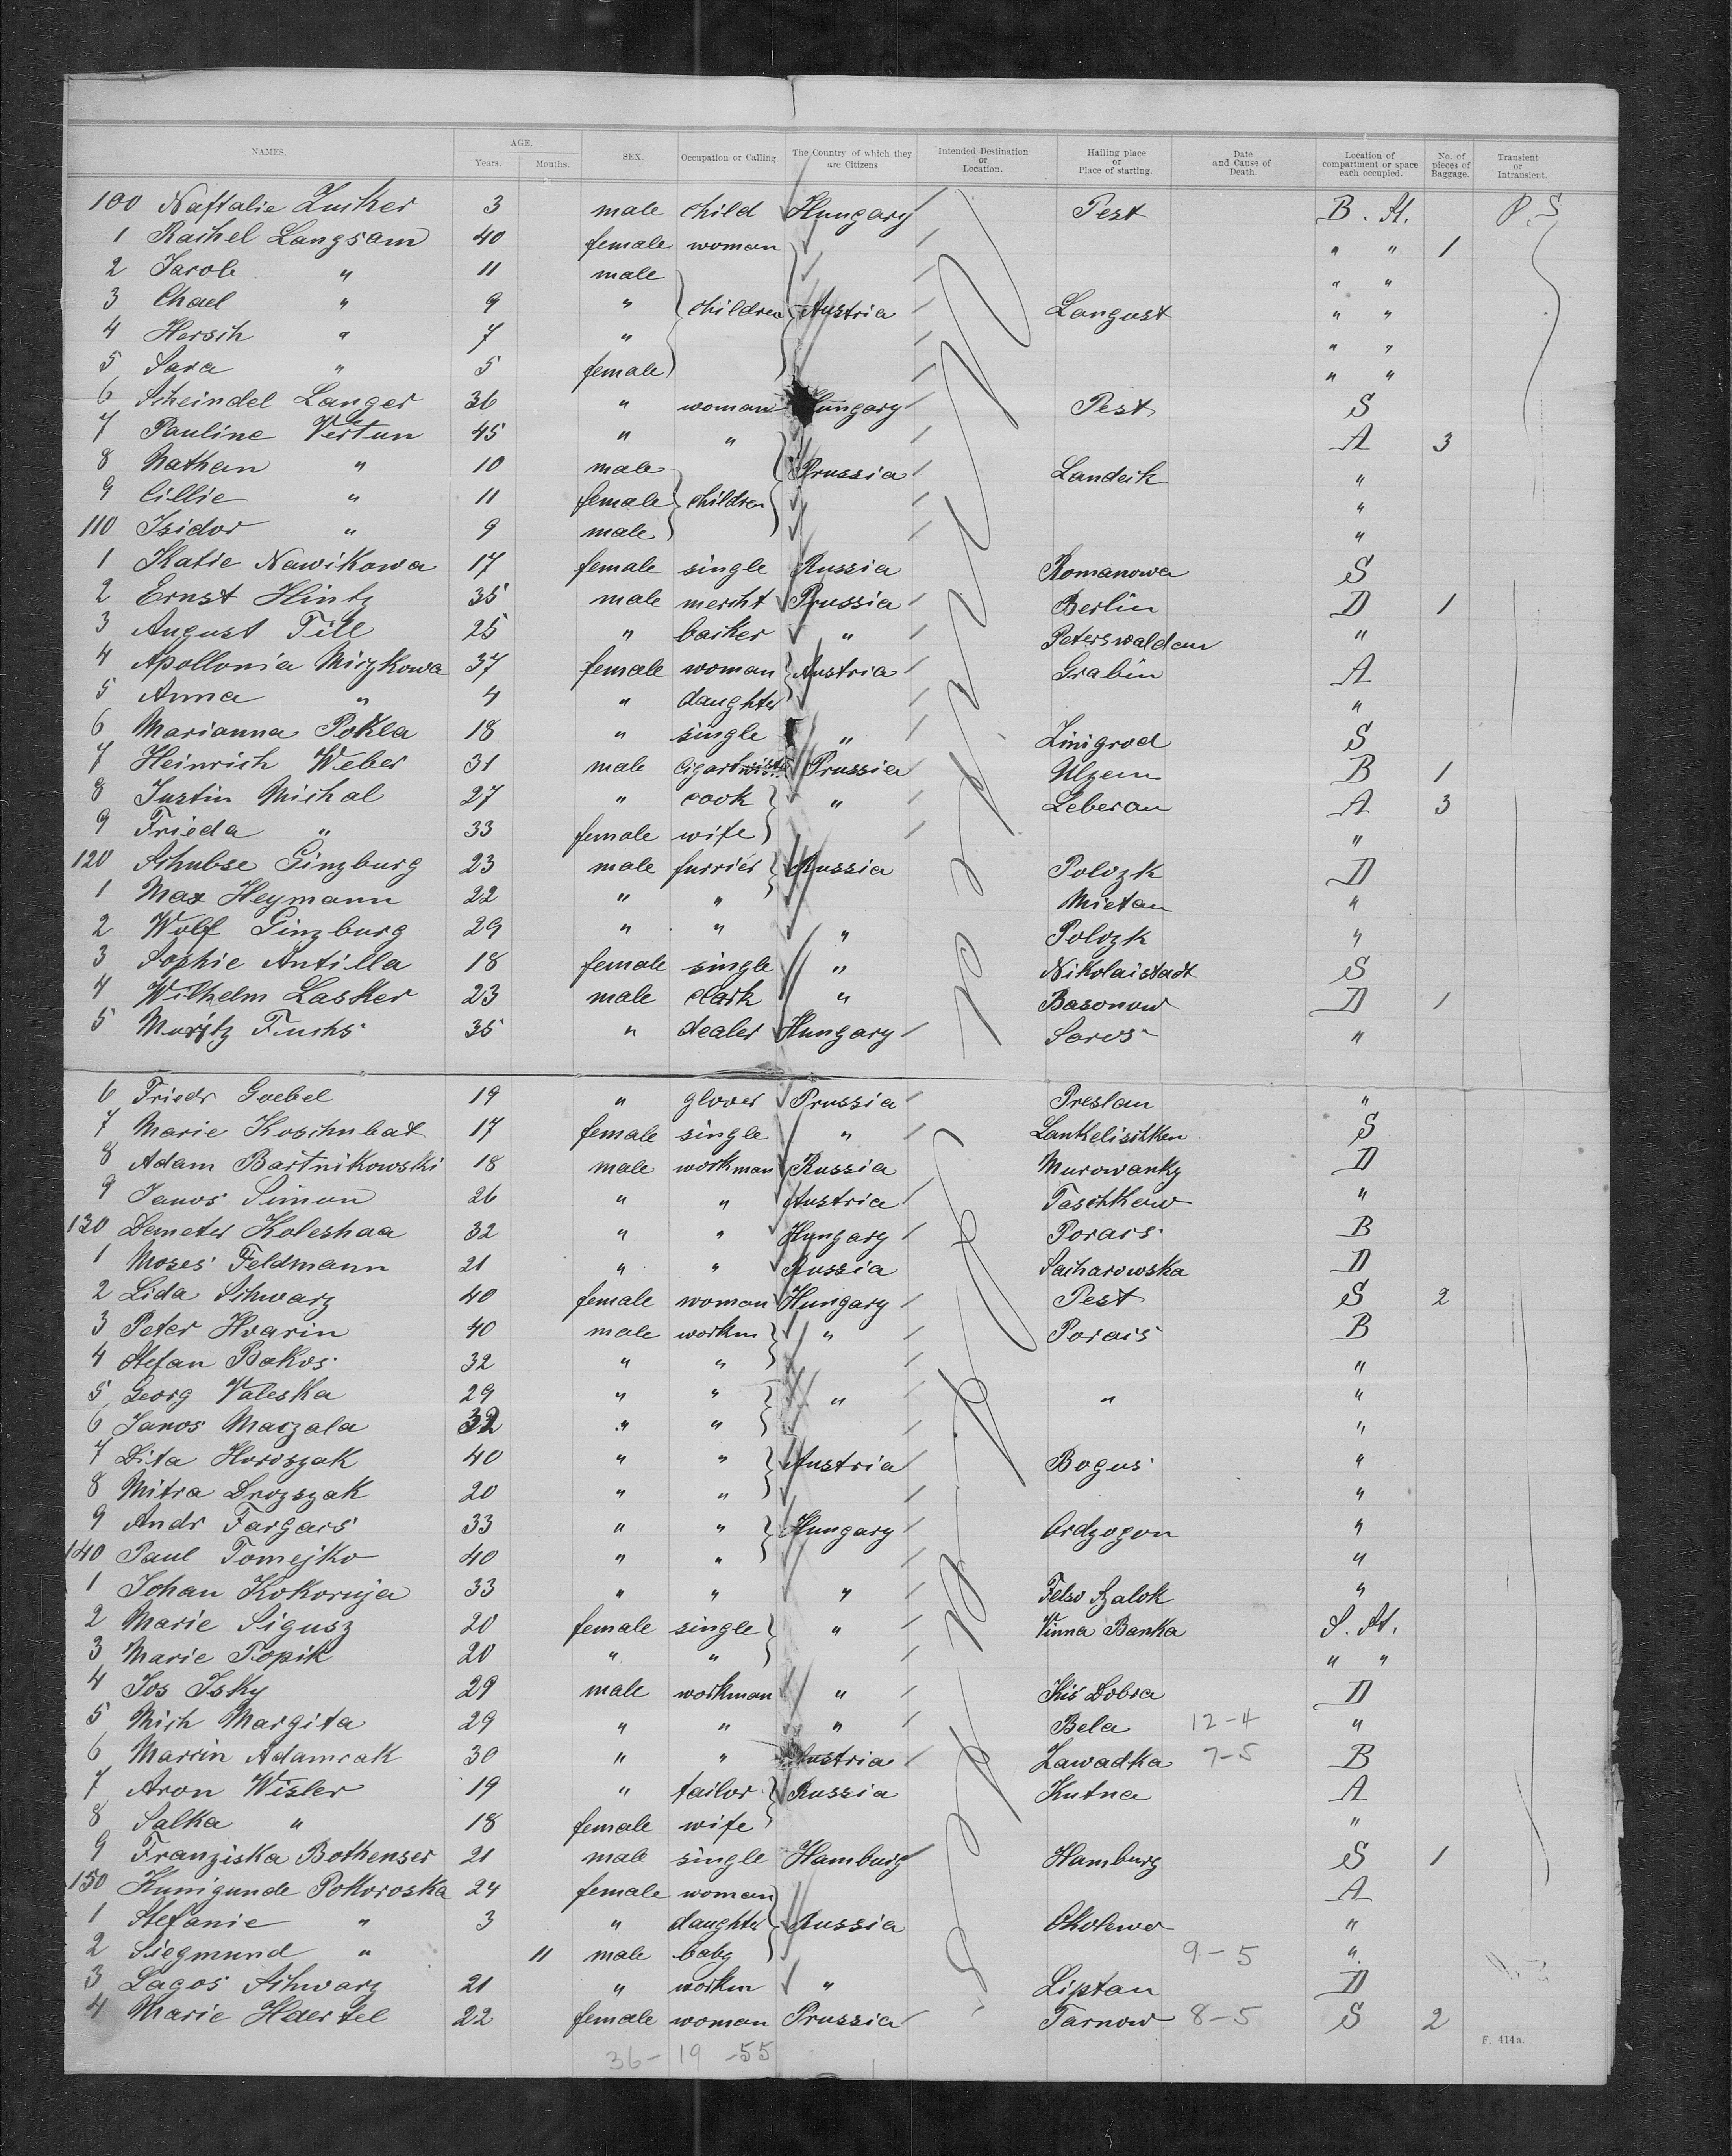 NAMES. AGE. Years. Months. SEX. Occupation or Calling. The Country of which they are Citizens Intended Destination or Location. Hailing place or Place of starting. Date and Cause of Death. Location of compartment or space each occupied. No. of pieces of Baggage. Transient or Intransient.
100 Naftalie Zucker 3 male child Hungary Pest B. St. P.S
1 Rachel Langsam 40 female woman " " 1
2 Jacob " 11 male " "
3 Chael " 9 " children Austria Langust " "
4 Hersch " 7 " " "
5 Sara " 5 female " "
6 Scheindel Langer 36 " woman Hungary Pest S
7 Pauline Vertun 45 " " A 3
8 Nathan " 10 male Prussia Landeck "
9 Cillie " 11 female children "
110 Isidor " 9 male "
1 Katie Nawikowa 17 female single Russia Romanowa S
2 Ernst Hintz 35 male mercht Prussia Berlin D 1
3 August Till 25 " backer " Peterswaldau "
4 Apollonia Miczkowa 37 female woman Austria Grabin A
5 Anna " 4 " daughter "
6 Marianna Pokla 18 " single " Zinigrod S
7 Heinrich Weber 31 male Prussia Ulzem B 1
8 Justin Michal 27 " cook " Leberau A 3
9 Frieda " 33 female wife "
120 Schubse Ginzburg 23 male furrier Russia Polozk D
1 Max Heymann 22 " " Mietau "
2 Wolf Ginzburg 29 " " " Polozk "
3 Sophie Antilla 18 female single " Nikolaistadt S
4 Wilhelm Lasker 23 male clark " Basonow D 1
5 Moritz Fuchs 35 " dealer Hungary Saros "
6 Friedr Goebel 19 " glover Prussia Breslau "
7 Marie Koschubat 17 female single " Lankelischken S
8 Adam Bartnikowski 18 male workman Russia Murowanky D
9 Janos Simon 26 " " Austria Taschkow "
130 Demeter Koleshaa 32 " " Hungary Porais B
1 Moses Feldmann 21 " " Russia Sacharowska D
2 Lida Schwarz 40 female woman Hungary Pest S 2
3 Peter Hvarin 40 male workm " Porais B
4 Stefan Bakos 32 " " "
5 Georg Valeska 29 " " " " "
6 Janos Maczala 32 " " "
7 Dita Horoszak 40 " " Austria Bogus "
8 Mitra Drozszak 20 " " "
9 Andr Fargacs 33 " " Hungary Ordzogon "
140 Paul Tomejko 40 " " "
1 Johan Kokoruja 33 " " " Felso Szalok "
2 Marie Sigusz 20 female single " Vinna Banka S. St.
3 Marie Topik 20 " " " "
4 Jos Isky 29 male workman " Kis Dobra D
5 Mich Margita 29 " " " Bela 12-4 "
6 Marcin Adamcak 30 " " Austria Zawadka 7-5 B
7 Aron Wisler 19 " tailor Russia Kutna A
8 Salka " 18 female wife "
9 Franziska Bothenser 21 male single Hamburg Hamburg S 1
150 Kunigunde Pokoroska 24 female woman A
1 Stefanie " 3 " daughter Russia Cholewo "
2 Siegmund " 11 male baby 9-5 "
3 Lagos Schwarz 21 " workm " Liptau D
4 Marie Haertel 22 female woman Prussia Tarnow 8-5 S 2
36- 19 -55
F. 414a.